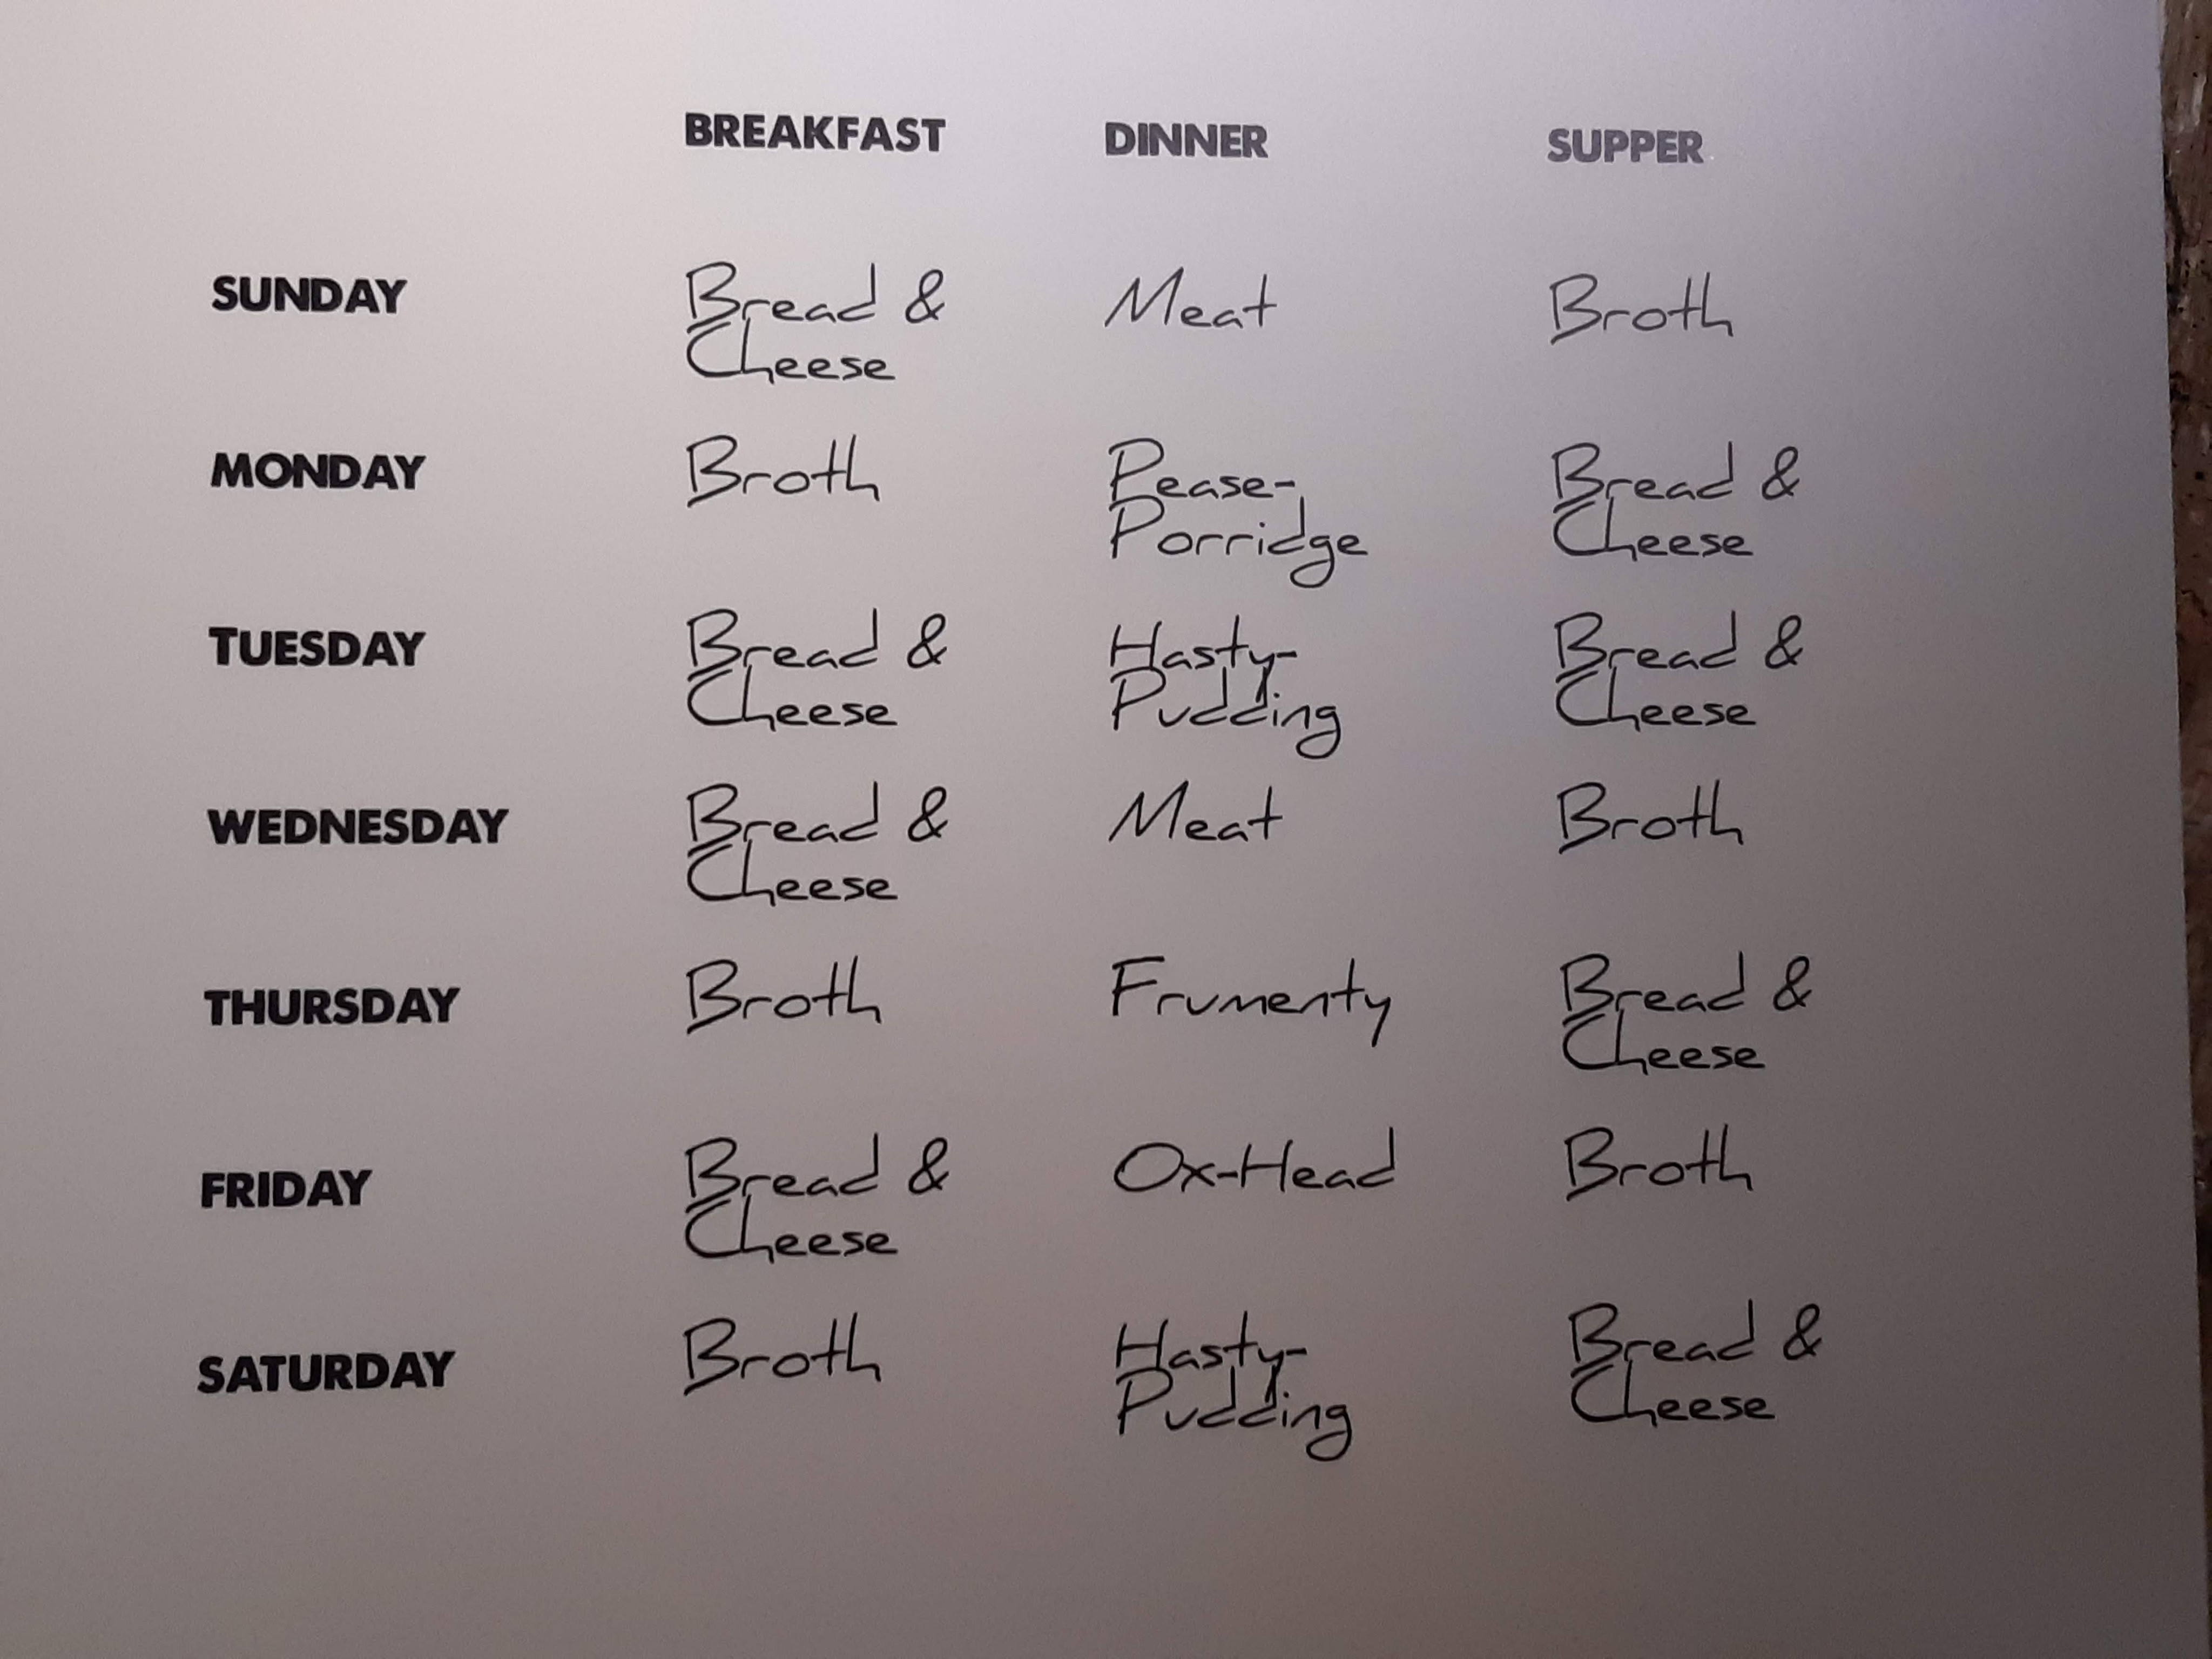 BREAKFAST DINNER SUPPER
SUNDAY Bread & Meat Broth
Cheese
MONDAY Broth Pease- Bread &
Porridge Cheese
TUESDAY Bread & Hasty- Bread &
Cheese Pudding Cheese
WEDNESDAY Bread & Meat Broth
Cheese
THURSDAY Broth Frumenty Bread &
Cheese
FRIDAY Bread & Ox-Head Broth
Cheese
SATURDAY Broth Hasty- Bread &
Pudding Cheese